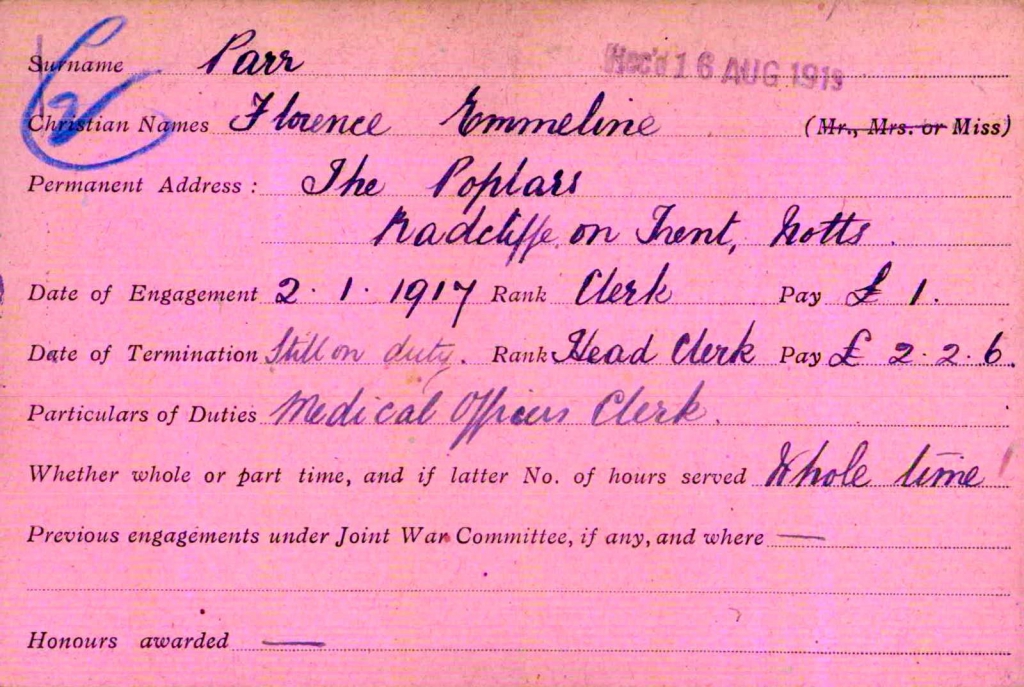 Surname Parr Rec'd 16 AUG 1919
Christian Names Florence Emmeline (Mr., Mrs. or Miss)
Permanent Address: The Poplars
Radcliffe on Trent, Notts.
Date of Engagement 2.1.1917 Rank Clerk Pay £ 1.
Date of Termination Still on duty. Rank Head Clerk Pay £ 2.2.6.
Particulars of Duties Medical Officers Clerk.
Whether whole or part time, and if latter No. of hours served Whole time
Previous engagements under Joint War Committee, if any, and where —
Honours awarded —